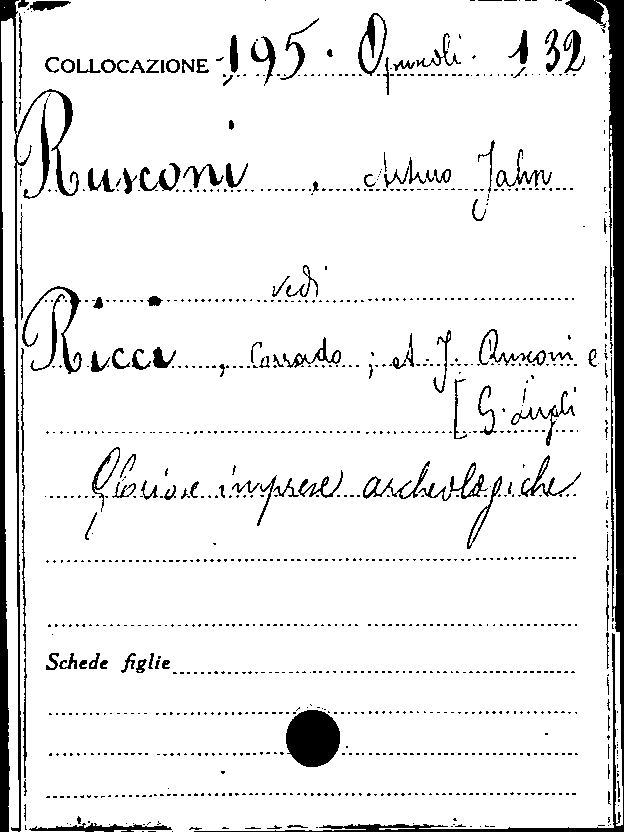 COLLOCAZIONE 195. Opuscoli. 132
Rusconi, Arturo Jahn
vedi
Ricci, Corrado; A. J. Rusconi e
[G. Lugli
Gloriose imprese archeologiche
Schede figlie